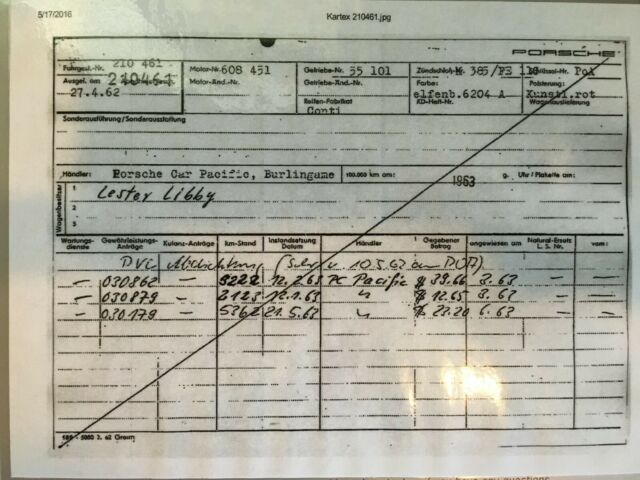 5/17/2016 Kartex 210461.jpg
PORSCHE
Fahrgest.-Nr. 210 461 Motor-Nr. 608 451 Getriebe-Nr. 55 101 Zündschloß-Nr. 385/ Schlüssel-Nr. PoA
Ausgel. am 210461 Motor-Änd.-Nr. Getriebe-Änd.-Nr. Farbe: Polsterung:
27.4.62 Reifen-Fabrikat elfenb.6204 A Kunstl.rot
Conti KD-Heft-Nr. Wagenauslieferung
Sonderausführung/Sonderausstattung
Händler: Porsche Car Pacific, Burlingame 100.000 km am: 1963 g. Uhr / Plakette am:
Wagenbesitzer 1 Lester Libby
2
3
Wartungs-dienste Gewährleistungs-Anträge Kulanz-Anträge km-Stand Instandsetzung Datum Händler Gegebener Betrag angewiesen am Natural-Ersatz L. S. Nr. vom:
10.5.62
— 030862 — 3222 12.2.63 PC Pacific $ 39.66 3.63 — —
— 030879 — 2123 12.1.63 " $ 12.65 3.63 — —
— 030179 — 5362 21.5.63 " $ 22.20 6.63 — —
5000 3. 62 Girsum
any questions